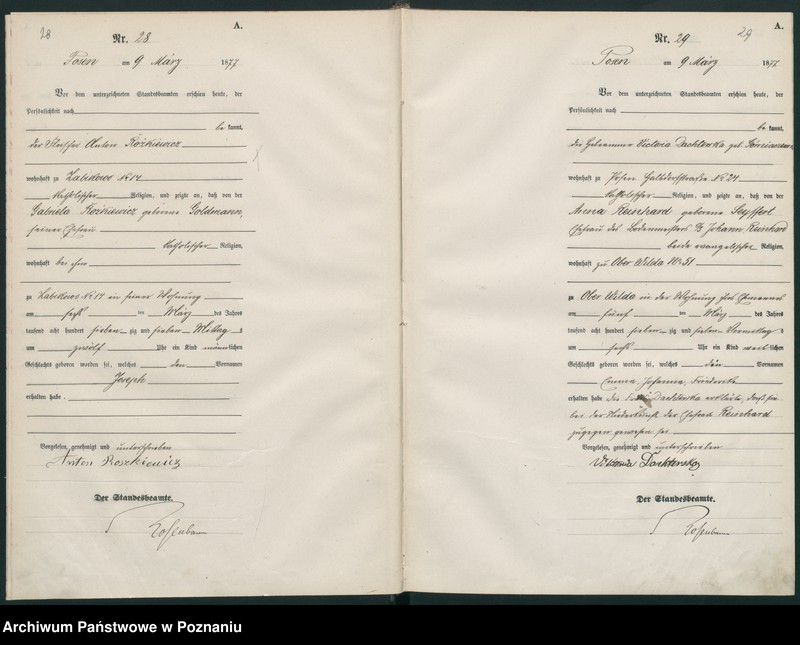 28
A.
Nr. 28
Posen am 9 März 1877
Vor dem unterzeichneten Standesbeamten erschien heute, der
Persönlichkeit nach
bekannt,
der Anton Rożkiewicz
wohnhaft zu Zabikowo No 14
katholischer Religion, und zeigte an, daß von der
Gabriela Rożkiewicz geborene Goldmann,
seiner Ehefrau
katholischer Religion,
wohnhaft bei ihm
zu Zabikowo No 14 in seiner Wohnung
am sechs ten März des Jahres
tausend acht hundert sieben zig und sieben Mittags
um zwölf Uhr ein Kind männlichen
Geschlechts geboren worden sei, welches den Vornamen
Joseph
erhalten habe.
Vorgelesen, genehmigt und unterschrieben
Anton Roszkiewicz
Der Standesbeamte.
Rosenbaum
29
A.
Nr. 29
Posen am 9 März 1877
Vor dem unterzeichneten Standesbeamten erschien heute, der
Persönlichkeit nach
bekannt,
die Hebeamme Victoria Dachtewska geb.
wohnhaft zu Posen Halbdorfstraße No 24
katholischer Religion, und zeigte an, daß von der
Anna Reinhard geborene Seyffert
Ehefrau des Bodenmeisters Johann Reinhard
beide evangelischer Religion,
wohnhaft zu Ober Wilda No 51
zu Ober Wilda in der Wohnung ihres Ehemannes
am fünf ten März des Jahres
tausend acht hundert sieben zig und sieben Vormittags
um sechs Uhr ein Kind weiblichen
Geschlechts geboren worden sei, welches den Vornamen
Emma Johanna Friederike
erhalten habe die Dachtewska erklärte, daß sie
bei der Niederkunft der Ehefrau Reinhard
zugegen gewesen sei.
Vorgelesen, genehmigt und unterschrieben
Dachtewska
Der Standesbeamte.
Rosenbaum
Archiwum Państwowe w Poznaniu